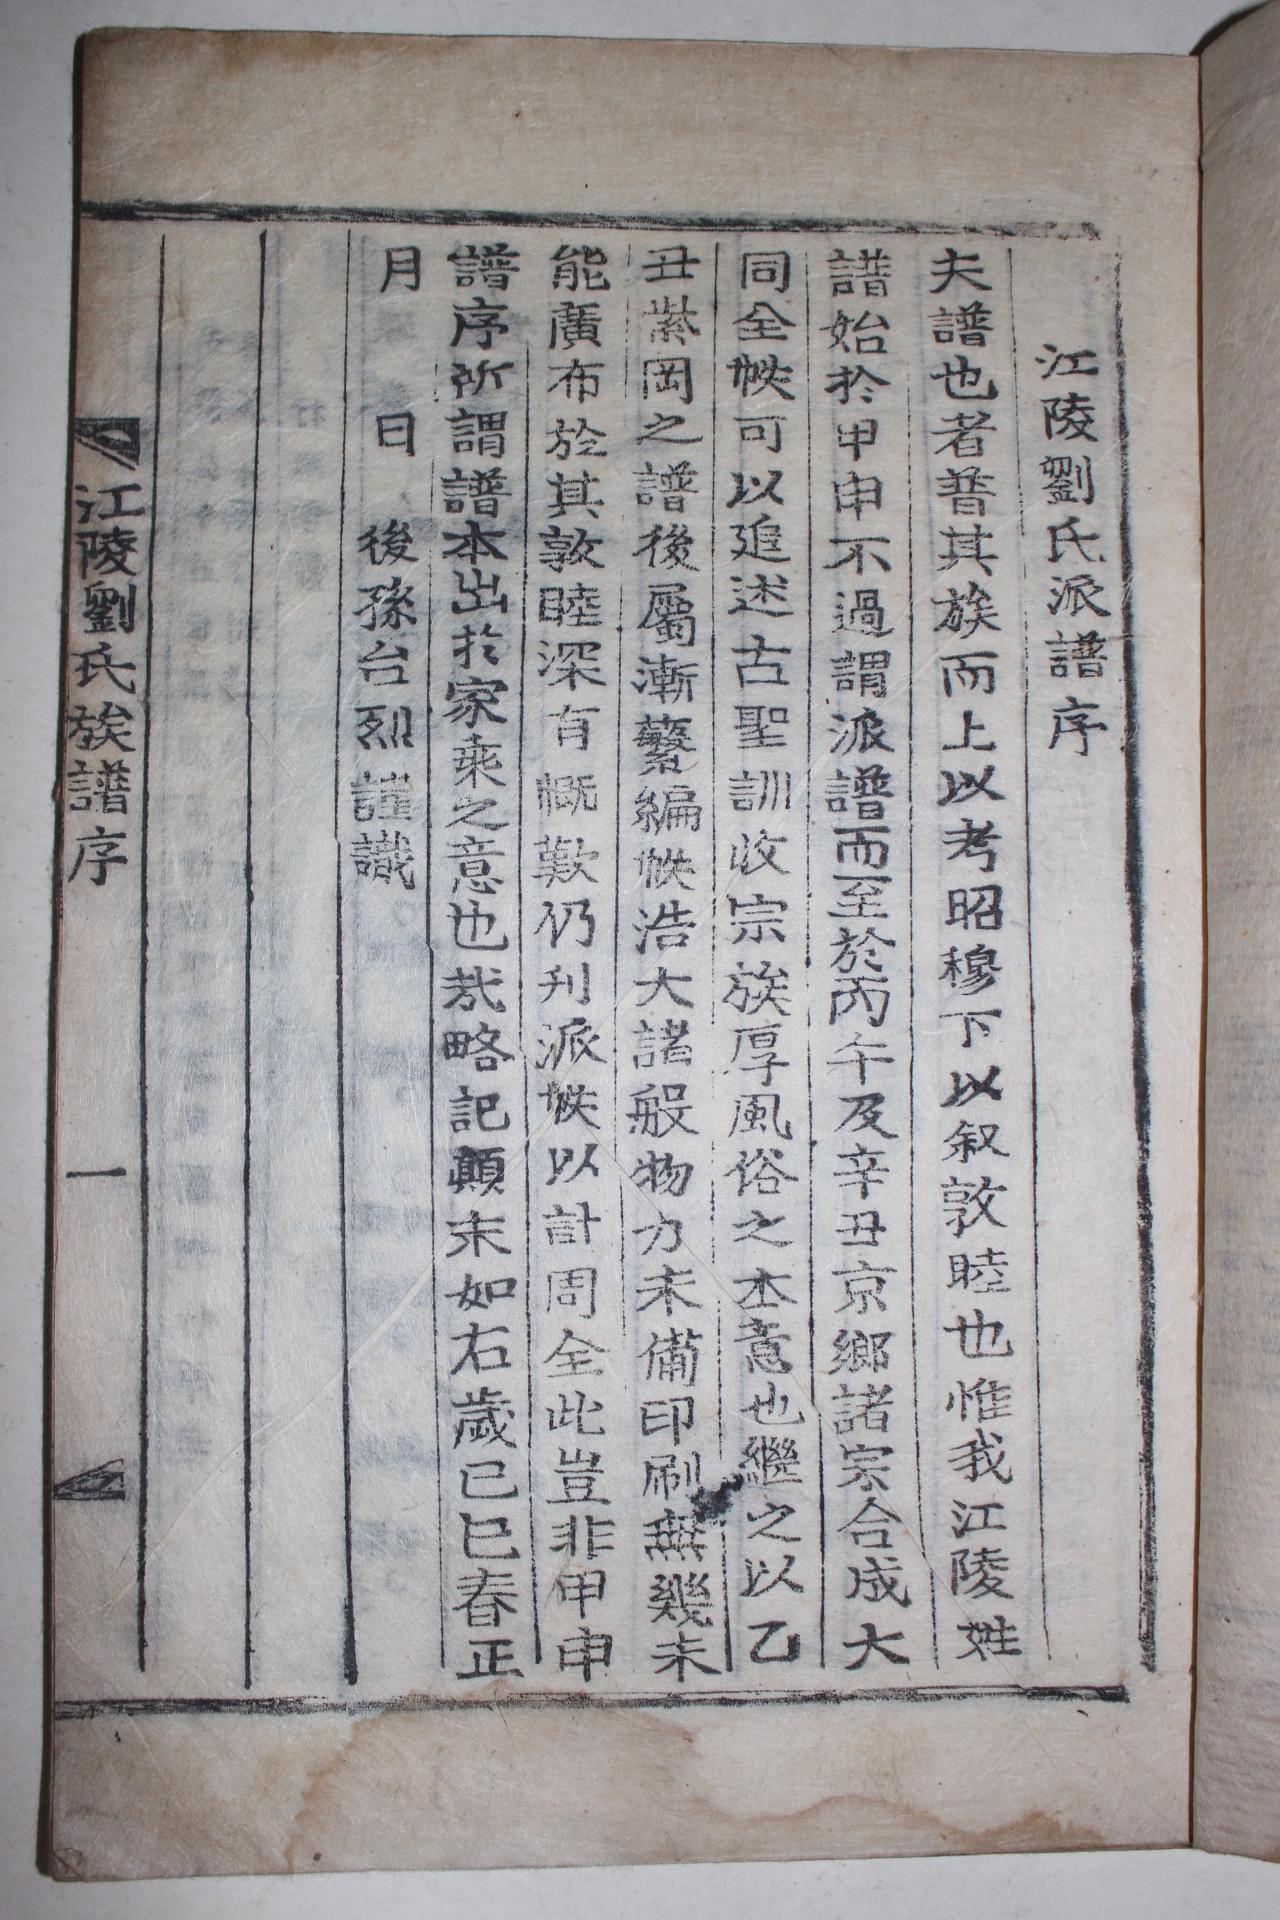 江陵劉氏派譜序
夫譜也者普其族而上以考昭穆下以叙敦睦也惟我江陵姓
譜始於甲申不過謂派譜而至於丙午及辛丑京鄉諸宗合成大
同全帙可以追述古聖訓收宗族厚風俗之本意也繼之以乙
丑紫岡之譜後屬漸蘩編帙浩大諸般物力未備印刷無幾未
能廣布於其敦睦深有慨歎仍刋派帙以計周全此豈非甲申
譜序所謂譜本出於家乘之意也哉略記顚末如右歲己巳春正
月　　日　後孫台烈謹識
江陵劉氏族譜序　一